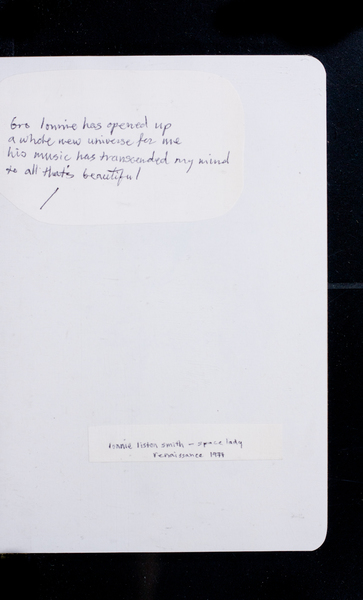 bro lonnie has opened up
a whole new universe for me
his music has transcended my mind
to all that's beautiful
lonnie liston smith - space lady
renaissance 1978